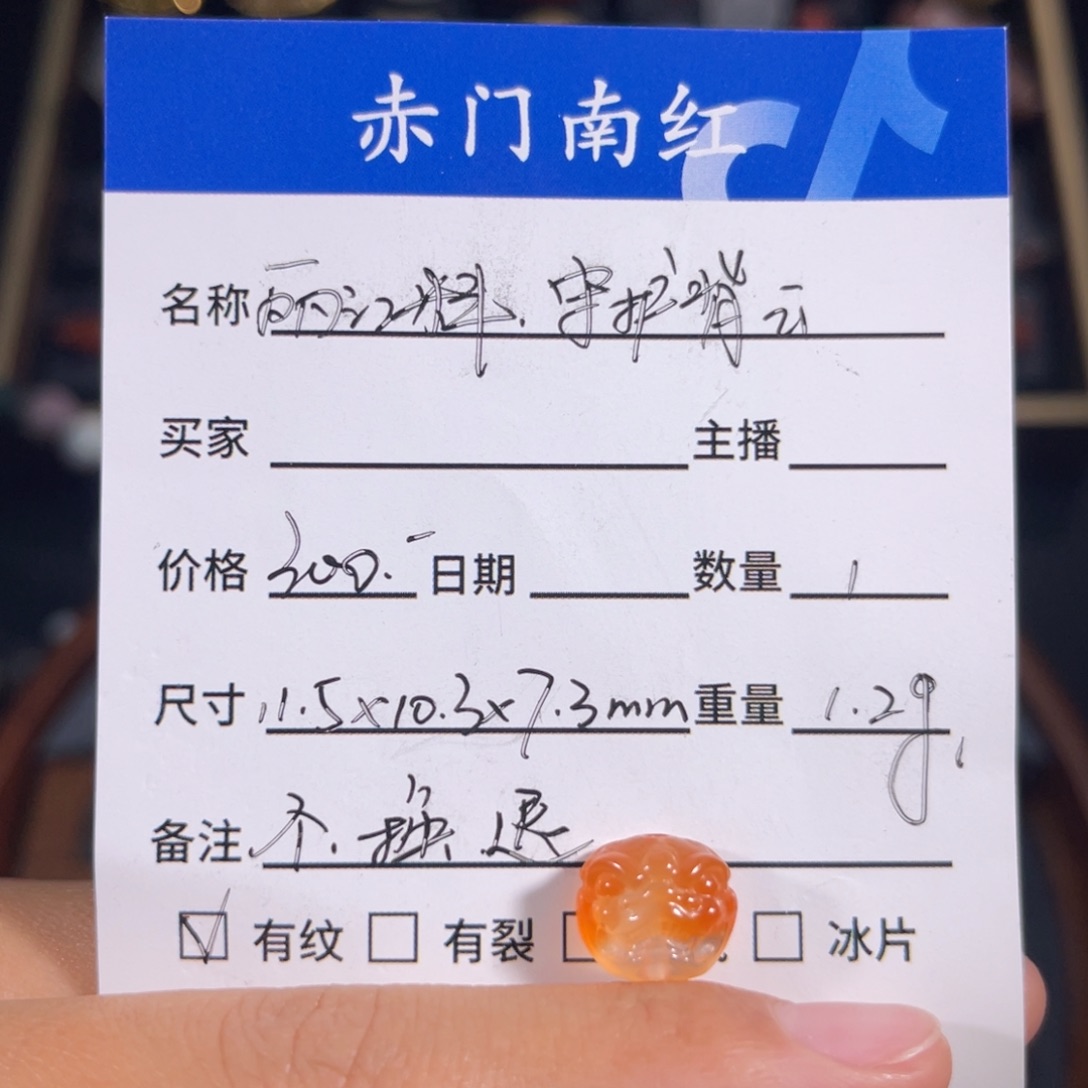 赤门南红
名称 丽江料. 守护背云
买家 主播
价格 300.- 日期 数量 1
尺寸 11.5x10.3x7.3mm 重量 1.2g.
备注 不换退
☑ 有纹 ☐ 有裂 ☐ ☐ 冰片